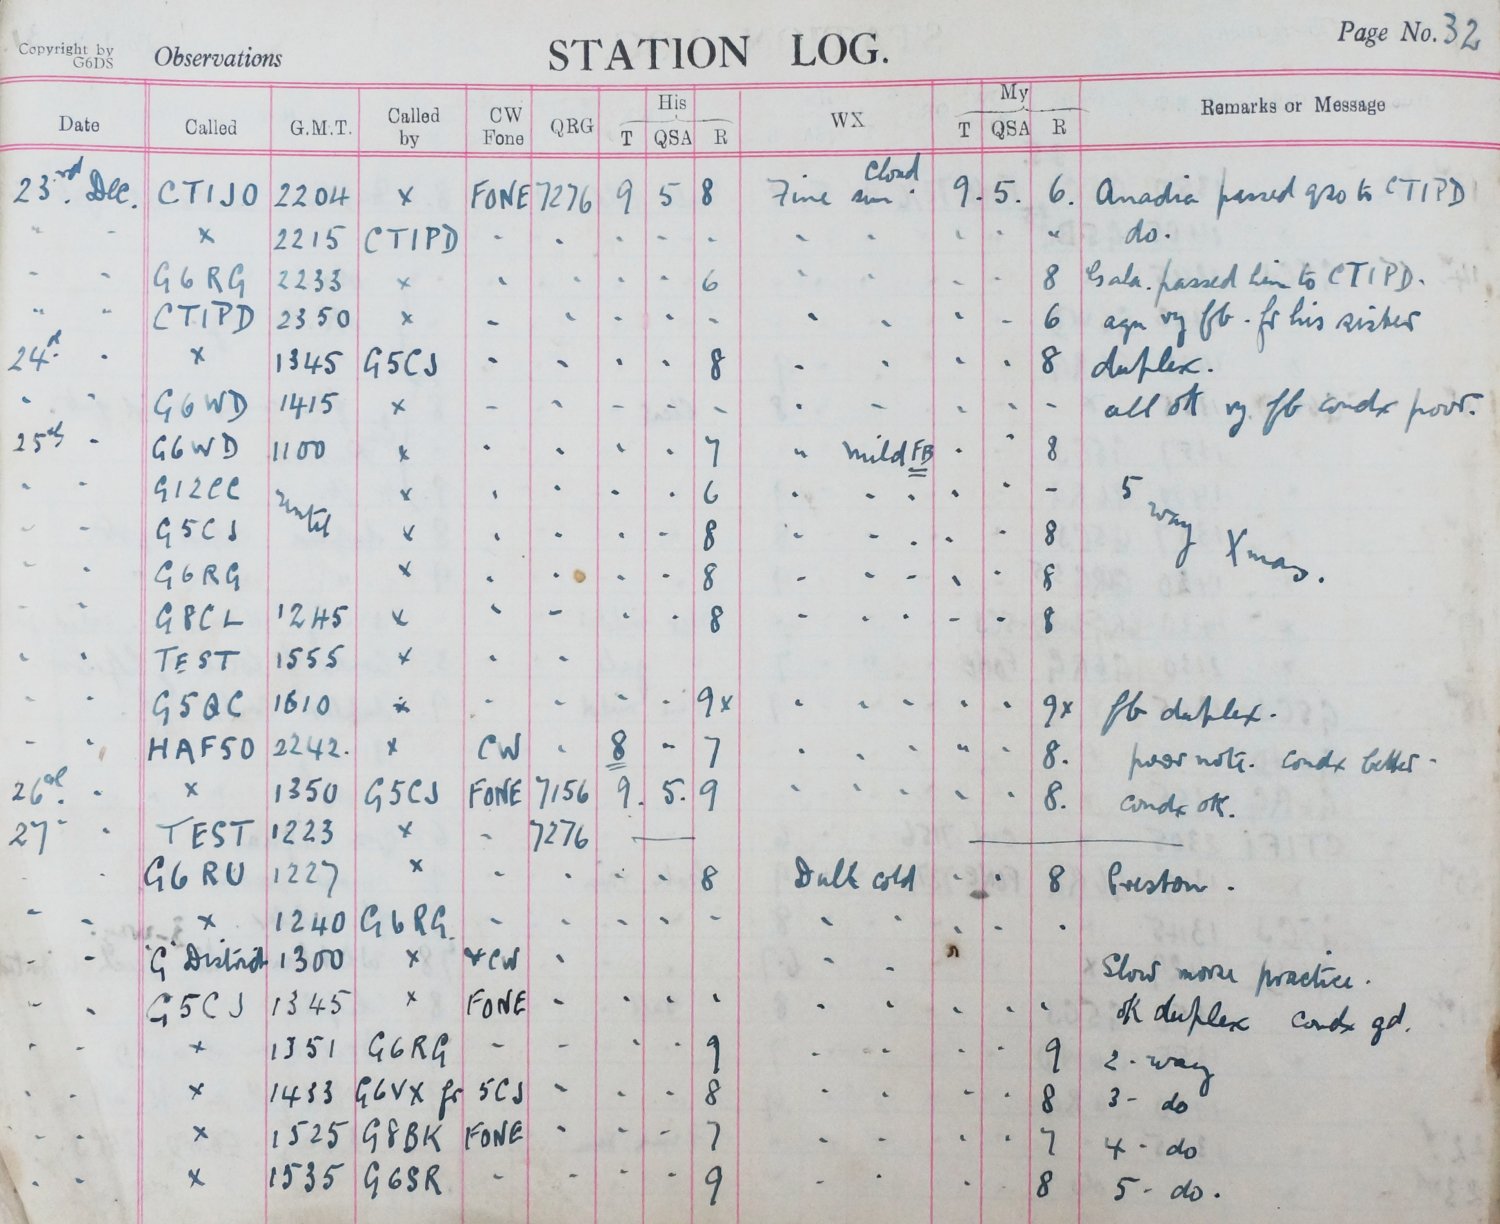 Copyright by G6DS Observations STATION LOG. Page No. 32
Date Called G.M.T. Called by CW Fone QRG His T QSA R WX My T QSA R Remarks or Message
23rd. Dec. CT1JO 2204 x FONE 7276 9 5 8 Fine Cloud 9. 5. 6. Anadia passed qso to CT1PD
" " x 2215 CT1PD - - - - - - - - - " do.
- - G6RG 2233 x - - - - 6 - - - - 8 passed him to CT1PD.
" " CT1PD 2350 x - - - - - - - - - 6 agn vy fb - fr his sister
24th - x 1345 G5CJ - - - - 8 - - - - 8 duplex.
- - G6WD 1415 x - - - - - - - - - - all ok vy fb condx poor.
25th - G6WD 1100 x - - - - 7 " mild FB - - 8
- - GI2CC until x - - - - 6 - - - - - 5 way Xmas.
- - G5CJ x - - - - 8 - - - - 8
- - G6RG x - - - - 8 - - - - 8
G8CL 1245 x - - - - 8 - - - - 8
- - TEST 1555 x - -
- - G5QC 1610 x - - - - 9x - - - - 9x fb duplex.
- - HAF5O 2242. x CW - 8 - 7 - - - - 8. poor note. condx better -
26th. - x 1350 G5CJ FONE 7156 9. 5. 9 - - - - 8. condx ok.
27 - TEST 1223 x - 7276 — —
- - G6RU 1227 x - - - - 8 Dull cold - - 8 Preston.
- - x 1240 G6RG. - - - - - - - - - -
- - "G" District 1300 x + CW - - - Slow morse practice.
- - G5CJ 1345 x FONE - - - - - - - - - ok duplex condx gd.
- - x 1351 G6RG - - - - 9 - - - - 9 2 - way
- - x 1433 G6VX fr 5CJ - - - 8 - - - - 8 3 - do
- - x 1525 G8BK FONE - - - 7 - - - - 7 4 - do
- - x 1535 G6SR - - - - 9 - - - 8 5 - do.